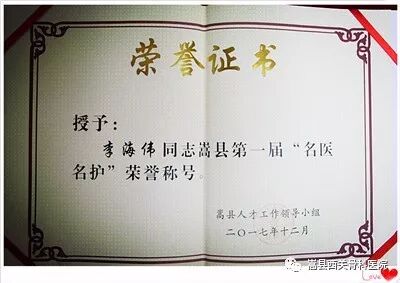 荣誉证书
授予：
李海伟同志嵩县第一届“名医
名护”荣誉称号。
嵩县人才工作领导小组
二〇一七年十二月
嵩县西关骨科医院
Love